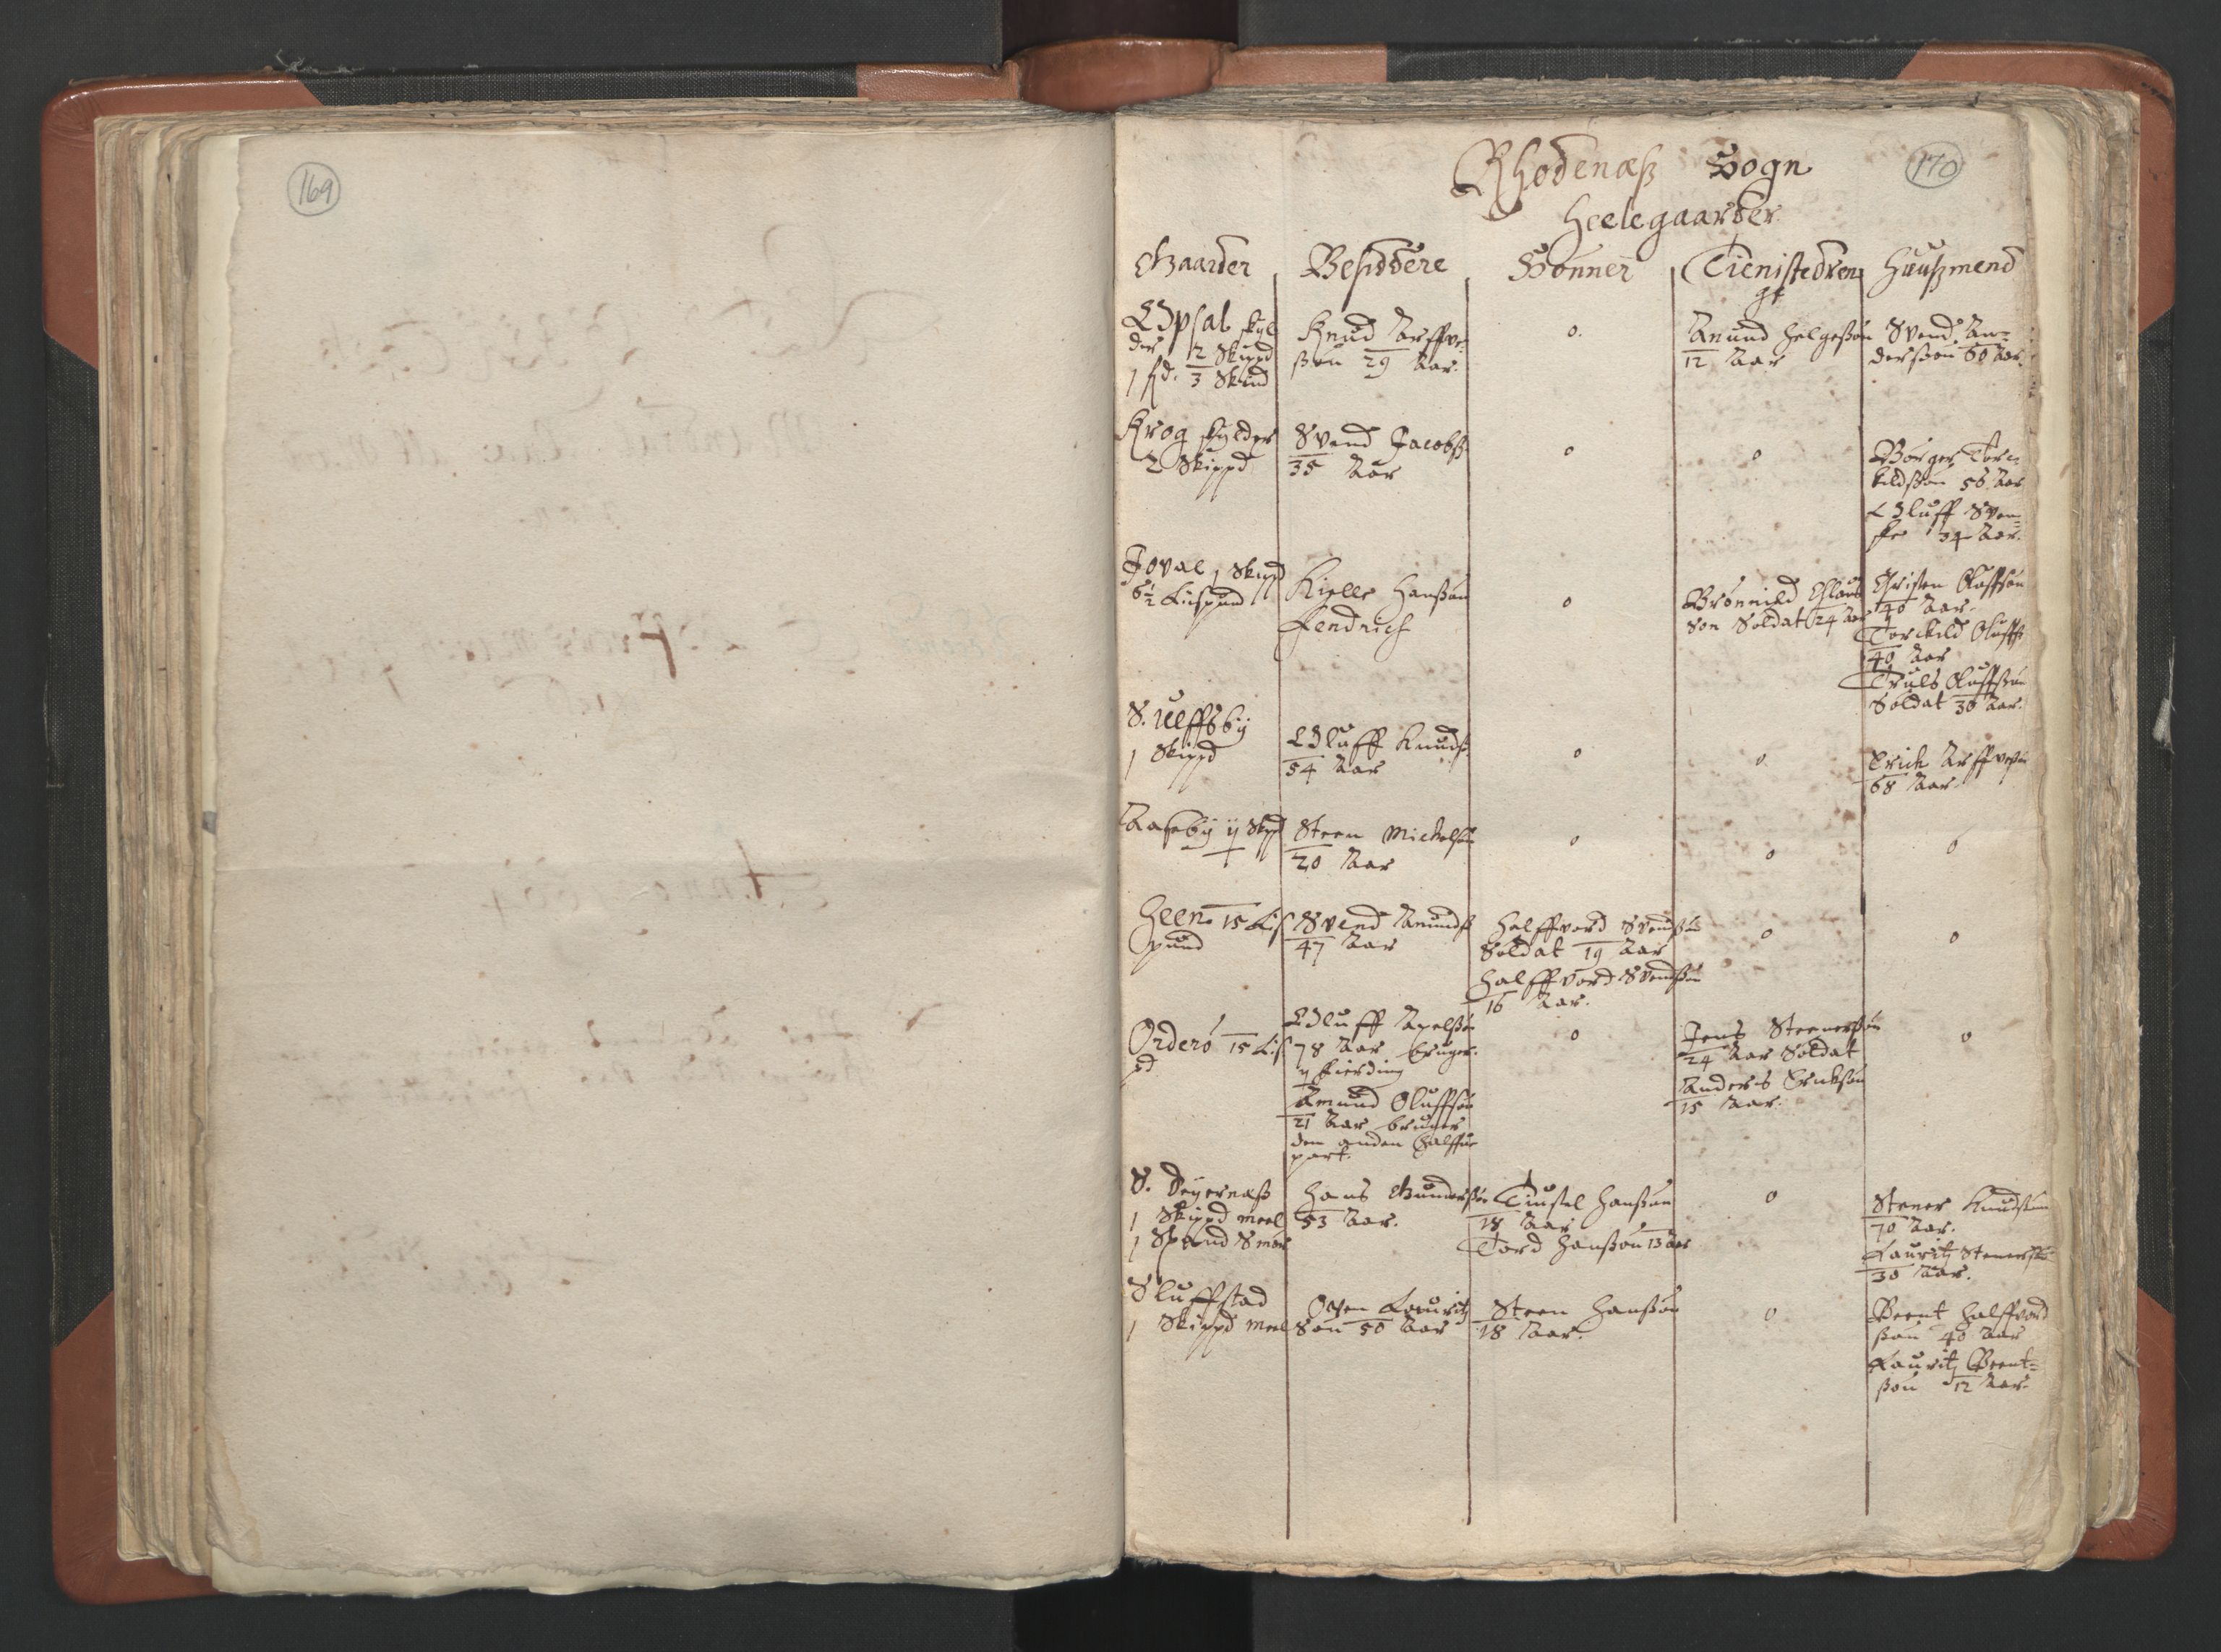 169
170
Rhodenæß Sogn
Heelegaarder
Gaarder Besiddere Sønner Tienistedren
ge
Huußmend
Opsal skyl
der 2 Skippd
1 fd. 3 Skind
Knud Arffve
ßøn 29 Aar.
0.
Anund Helgeßøn
12 Aar
Svend An=
derßøn 60 Aar.
Krog skylder
2 Skippd
Svend Jacobß.
35 Aar
0
0
Børger Tore
kildßøn 56 Aar
Oluff Sven=
ske 34 Aar.
Joval 1 Skipd
6½ Lispund
Kield Hanßøn
Fendrich
0
Brønnild Olaus
Søn Soldat 24 Aar
Christen Oluffsøn
40 Aar.
Torckild Oluffs
40 Aar
Truls Oluffsøn
Soldat 30 Aar.
S. Ulffsbÿ
1 Skippd
Oluff Knudß
54 Aar
0
0.
Erich Arffveßøn
68 Aar
Aaseby ij Skpd
Steen Michelsøn
20 Aar
0
0
0
Heen 15 Lis
pund
Svend Anundß
47 Aar
Halffvord Svendßøn
Soldat 19 Aar
Halffvord Svendßøn
16 Aar.
0
0
Ørderø 15 Lis
pd
Oluff Axelßøn
78 Aar bruger
ij fierding
Amund Oluffsøn
21 Aar bruger
den anden halffve
part.
0
Jens Steenerßøn
24 Aar Soldat
Anders Erichsøn
15 Aar.
0
S. Deyernæß
1 Skippd meel
1 Spand Smør
Hans Gunderßøn
53 Aar.
Tiustel Hanßøn
18 Aar
Tord Hanßøn 13 Aar
0
Stener Knudßøn
70 Aar.
Lauritz Stenerßøn
30 Aar.
Sluffstad
1 Skippd meel
Oven Lauritz
Søn 50 Aar
Steen Hanßøn
18 Aar.
0
Beent Halffvord
ßøn 40 Aar
Lauritz Beent=
ßøn 12 Aar.